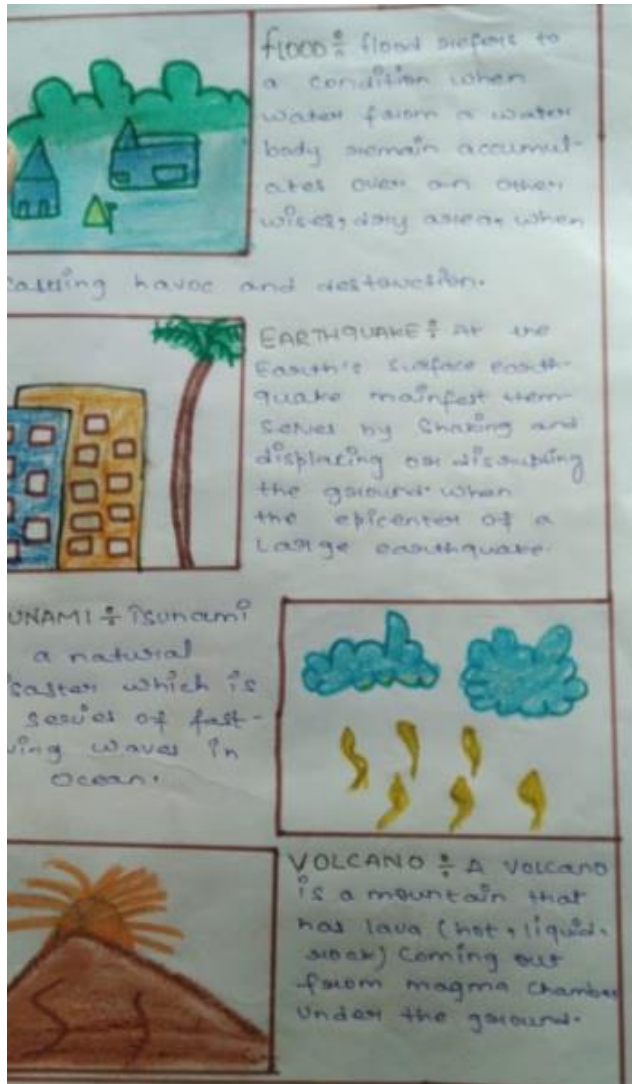 FLOOD ÷ flood refers to
a condition when
water from a water
body remain accumul-
ates over an other
wises, dry area, when
havoc and destruction.
EARTHQUAKE ÷ At the
Earth's surface earth-
quake mainfest them-
selves by Shaking and
displacing or disrupting
the ground. when
the epicenter of a
Large earthquake.
UNAMI ÷ Tsunami
a natural
saster which is
series of fast-
ving waves in
Ocean.
VOLCANO ÷ A Volcano
is a mountain that
has lava (hot, liquid,
rock) Coming out
from magma chamber
Under the ground.